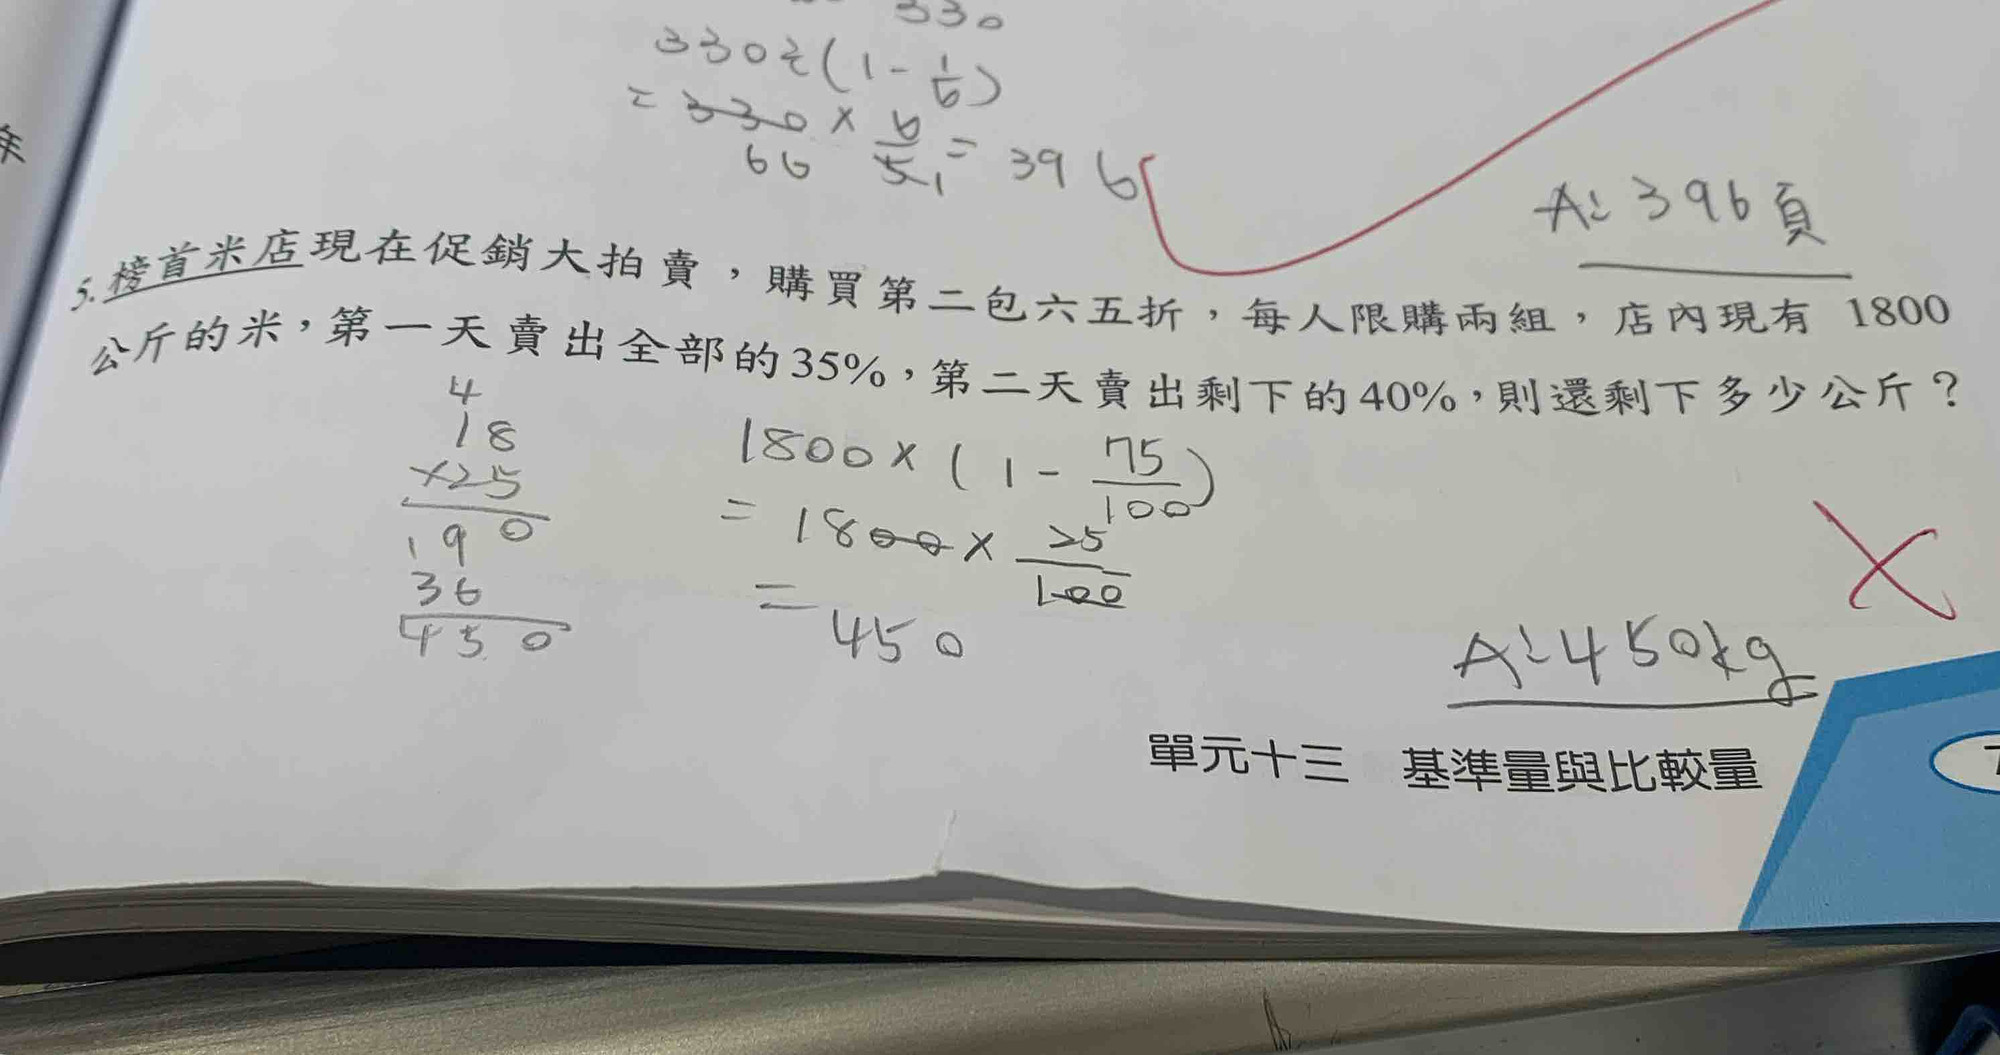 330
330÷(1-1/6)
=330×6/5=396
66 1
A:396頁
5.榜首米店現在促銷大拍賣，購買第二包六五折，每人限購兩組，店內現有 1800
公斤的米，第一天賣出全部的35%，第二天賣出剩下的40%，則還剩下多少公斤？
4
18
×25
190
36
450
1800×(1-75/100)
=1800×25/100
=450
A:450kg
單元十三 基準量與比較量